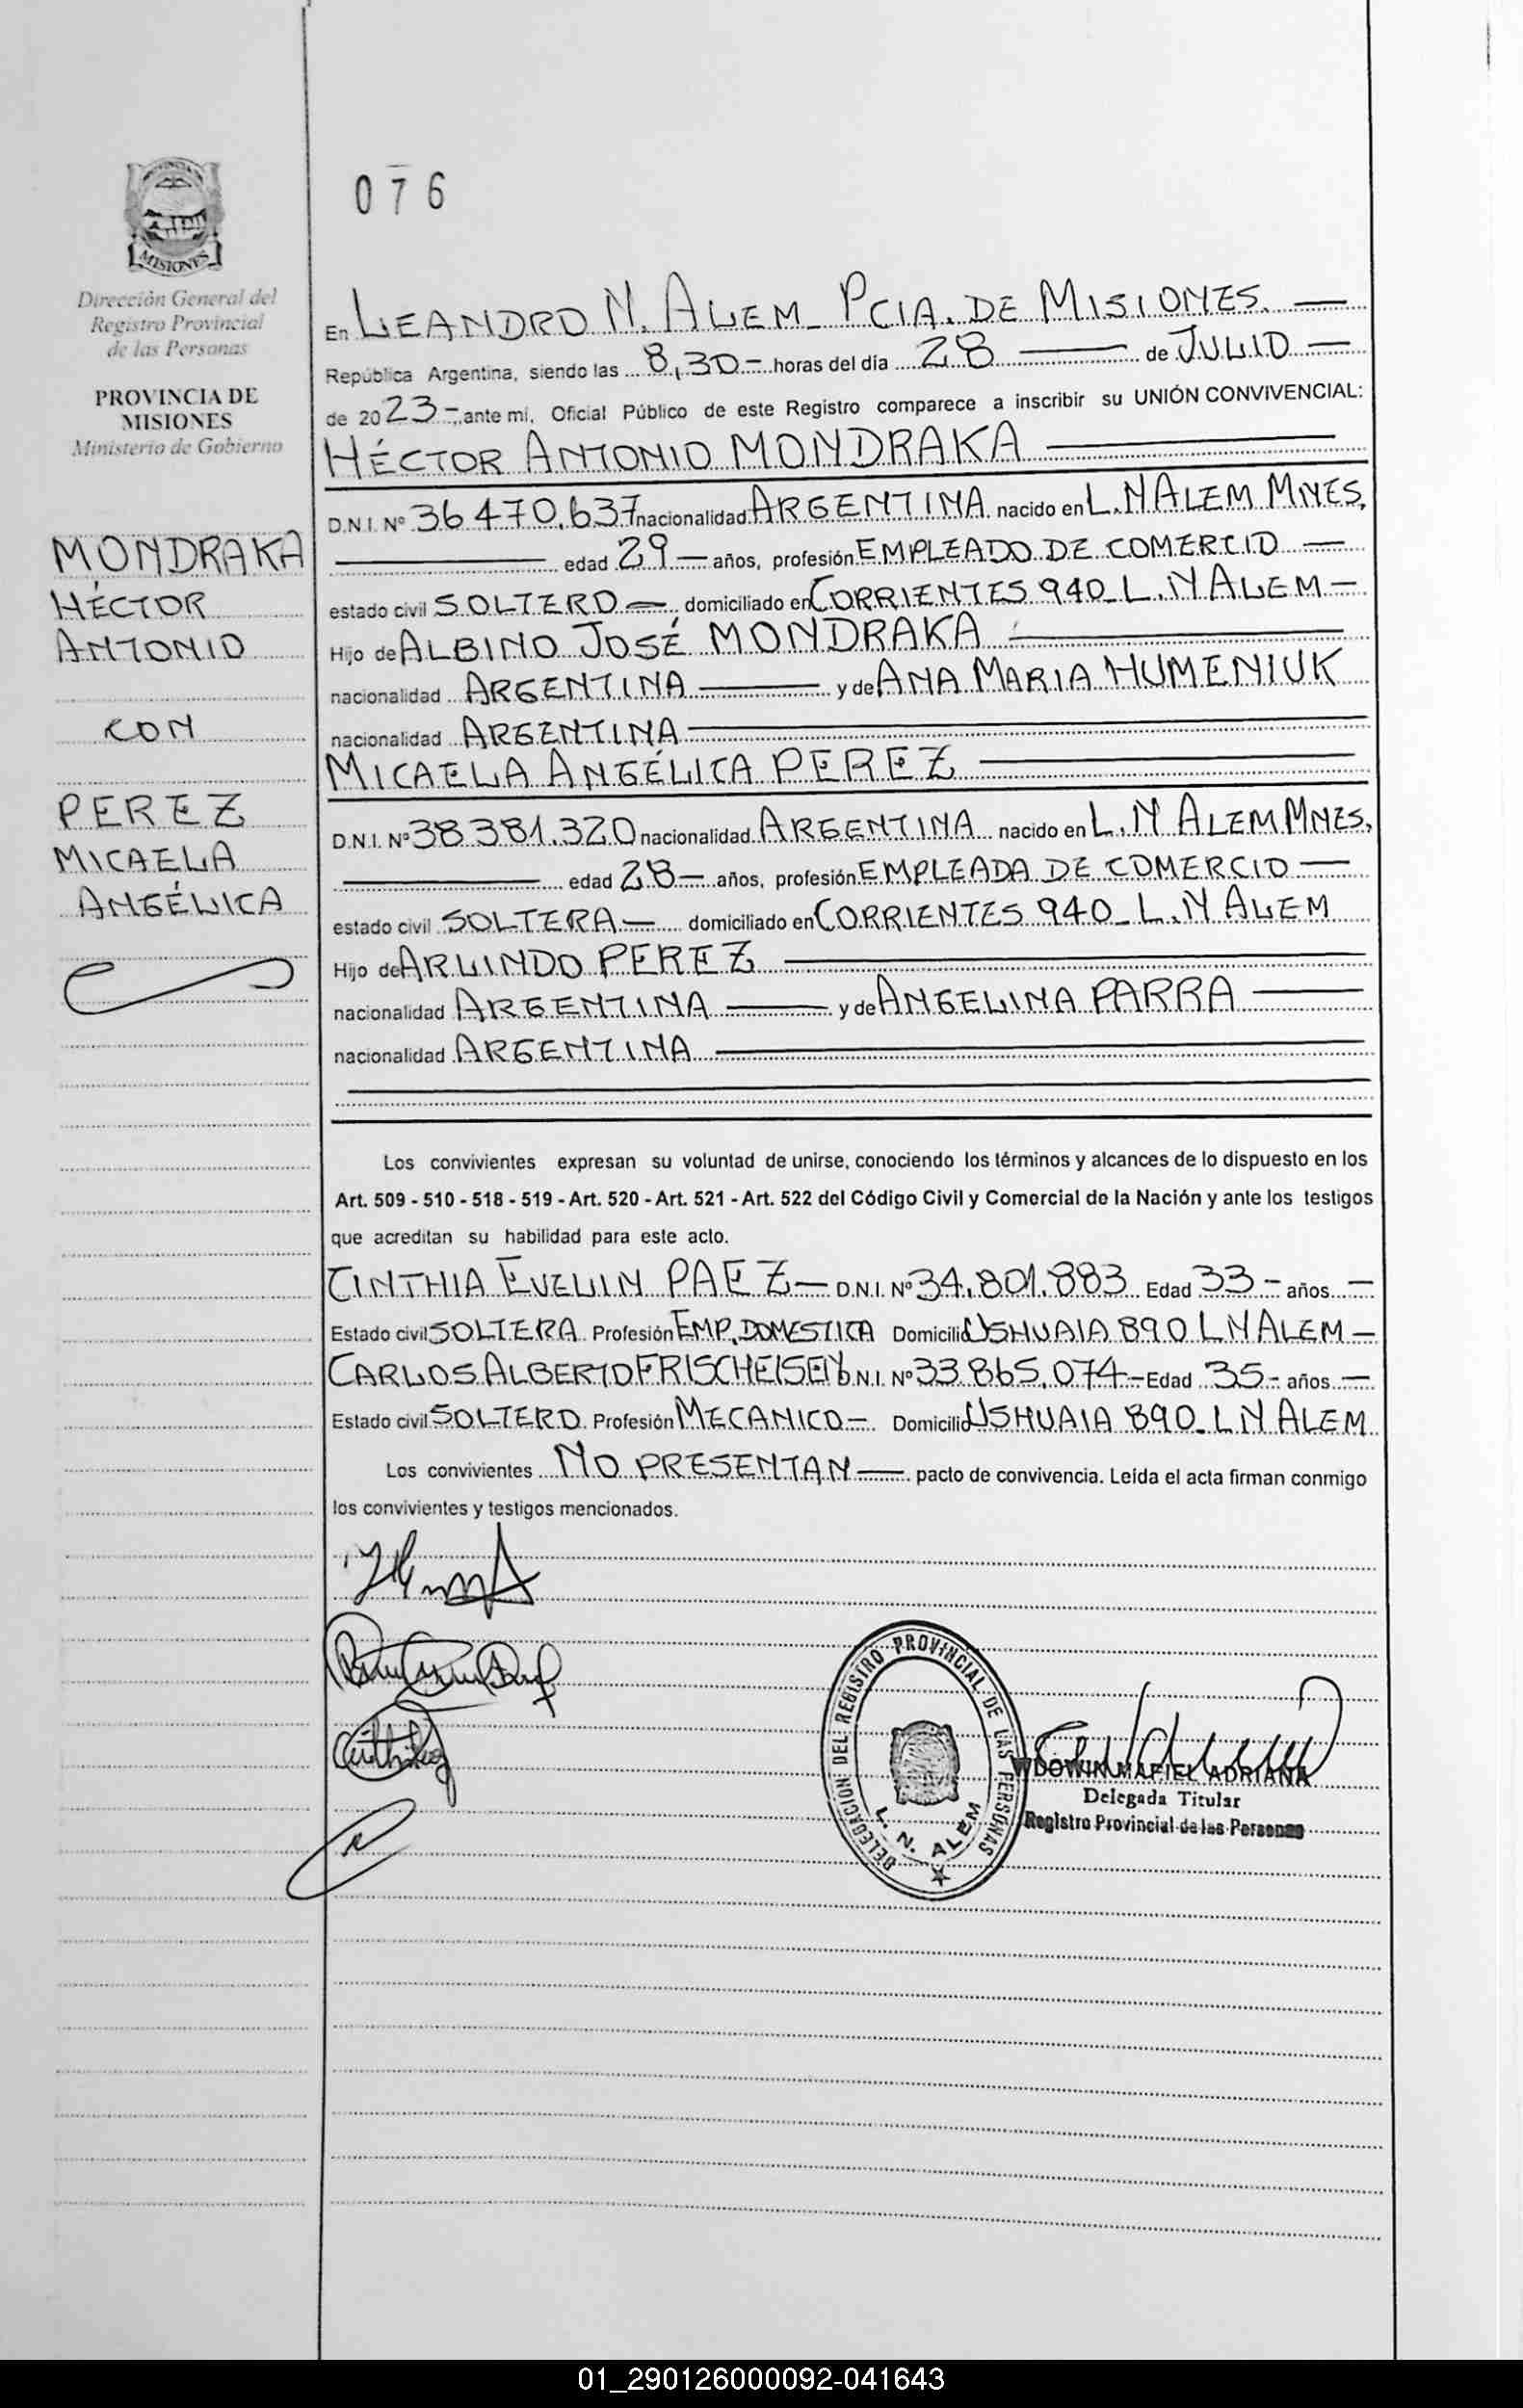 076
PROVINCIA DE
MISIONES
Dirección General del
Registro Provincial
de las Personas
PROVINCIA DE
MISIONES
Ministerio de Gobierno
MONDRAKA
HÉCTOR
ANTONIO
CON
PEREZ
MICAELA
ANGÉLICA
En LEANDRO N. ALEM_ PCIA. DE MISIONES. —
República Argentina, siendo las 8,30 - horas del día 28 — de JULIO —
de 2023 -, ante mí, Oficial Público de este Registro comparece a inscribir su UNIÓN CONVIVENCIAL:
HÉCTOR ANTONIO MONDRAKA —
D.N.I. Nº 36470.637 nacionalidad ARGENTINA nacido en L.N ALEM MNES.
— edad 29 — años, profesión EMPLEADO DE COMERCIO —
estado civil SOLTERO —, domiciliado en CORRIENTES 940_ L.N ALEM —
Hijo de ALBINO JOSÉ MONDRAKA —
nacionalidad ARGENTINA — y de ANA MARIA HUMENIUK
nacionalidad ARGENTINA —
MICAELA ANGÉLICA PEREZ —
D.N.I. Nº 38381.320 nacionalidad ARGENTINA nacido en L.N ALEM MNES.
— edad 28 — años, profesión EMPLEADA DE COMERCIO —
estado civil SOLTERA — domiciliado en CORRIENTES 940_ L.N ALEM
Hijo de ARLINDO PEREZ —
nacionalidad ARGENTINA — y de ANGELINA PARRA —
nacionalidad ARGENTINA —
Los convivientes expresan su voluntad de unirse, conociendo los términos y alcances de lo dispuesto en los
Art. 509 - 510 - 518 - 519 - Art. 520 - Art. 521 - Art. 522 del Código Civil y Comercial de la Nación y ante los testigos
que acreditan su habilidad para este acto.
CINTHIA EVELIN PAEZ — D.N.I. Nº 34.801.883 Edad 33 - años —
Estado civil SOLTERA Profesión EMP. DOMESTICA Domicilio USHUAIA 890 L N ALEM —
CARLOS ALBERTO FRISCHEISEN D.N.I. Nº 33.865.074 - Edad 35 - años —
Estado civil SOLTERO Profesión MECANICO — Domicilio USHUAIA 890_ L N ALEM
Los convivientes NO PRESENTAN — pacto de convivencia. Leída el acta firman conmigo
los convivientes y testigos mencionados.
DELEGACION DEL REGISTRO PROVINCIAL DE LAS PERSONAS
L. N. ALEM
ADRIANA
Delegada Titular
Registro Provincial de las Personas
01_290126000092-041643